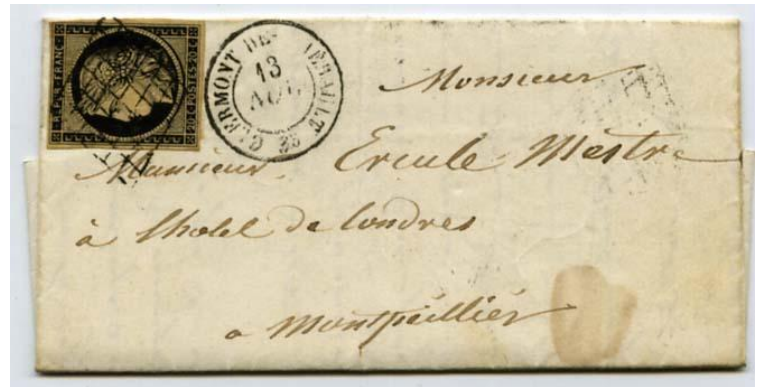 REPUB FRANC
POSTES
CLERMONT DE HERAULT
13
AOU
33
Monsieur
Monsieur Ercule Mestre
à lhotel de londres
a montpellier